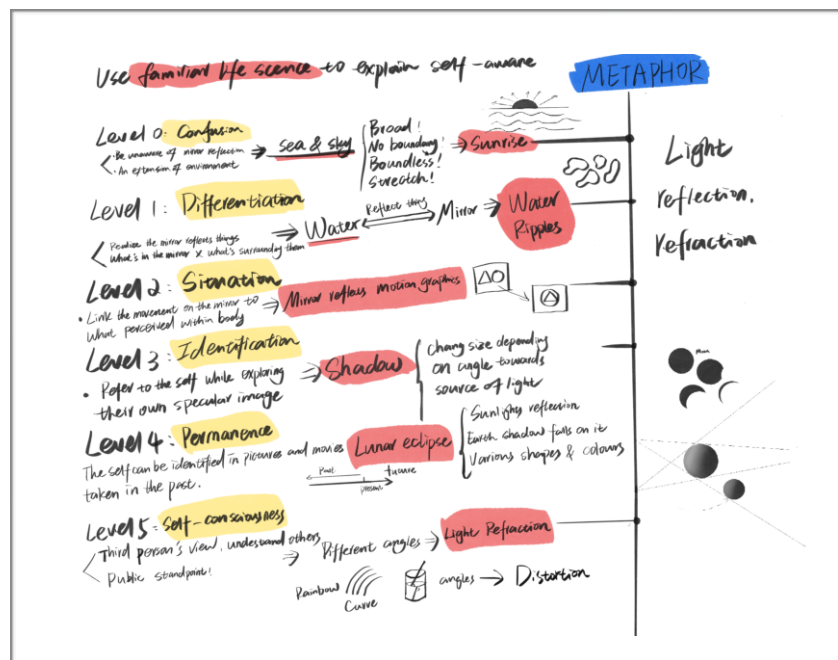 Use familiar life scence to explain self-aware
METAPHOR
Level 0: Confusion
· Be unaware of mirror reflection
· An extension of environment
sea & sky
Broad!
No boundary!
Boundless!
Stretch!
Sunrise
Light
reflection.
refraction
Level 1: Differentiation
Realize the mirror reflects things
What's in the mirror x what's surrounding them
Water
Reflect thing
Mirror
Water
Ripples
Level 2: Situation
· Link the movement on the mirror to
what perceived within body
Mirror reflects motion graphics
Level 3: Identification
· Refer to the self while exploring
their own specular image
Shadow
Chang size depending
on angle towards
source of light
Moon
Level 4: Permanence
The self can be identified in pictures and movies
taken in the past.
Lunar eclipse
Past
present
Sunlights reflection
Earth shadow falls on it
Various shapes & colours
Level 5: Self-consciousness
Third person's view, understand others
Public standpoint!
Different angles
Light Refraction
Rainbow
Curve
angles → Distortion